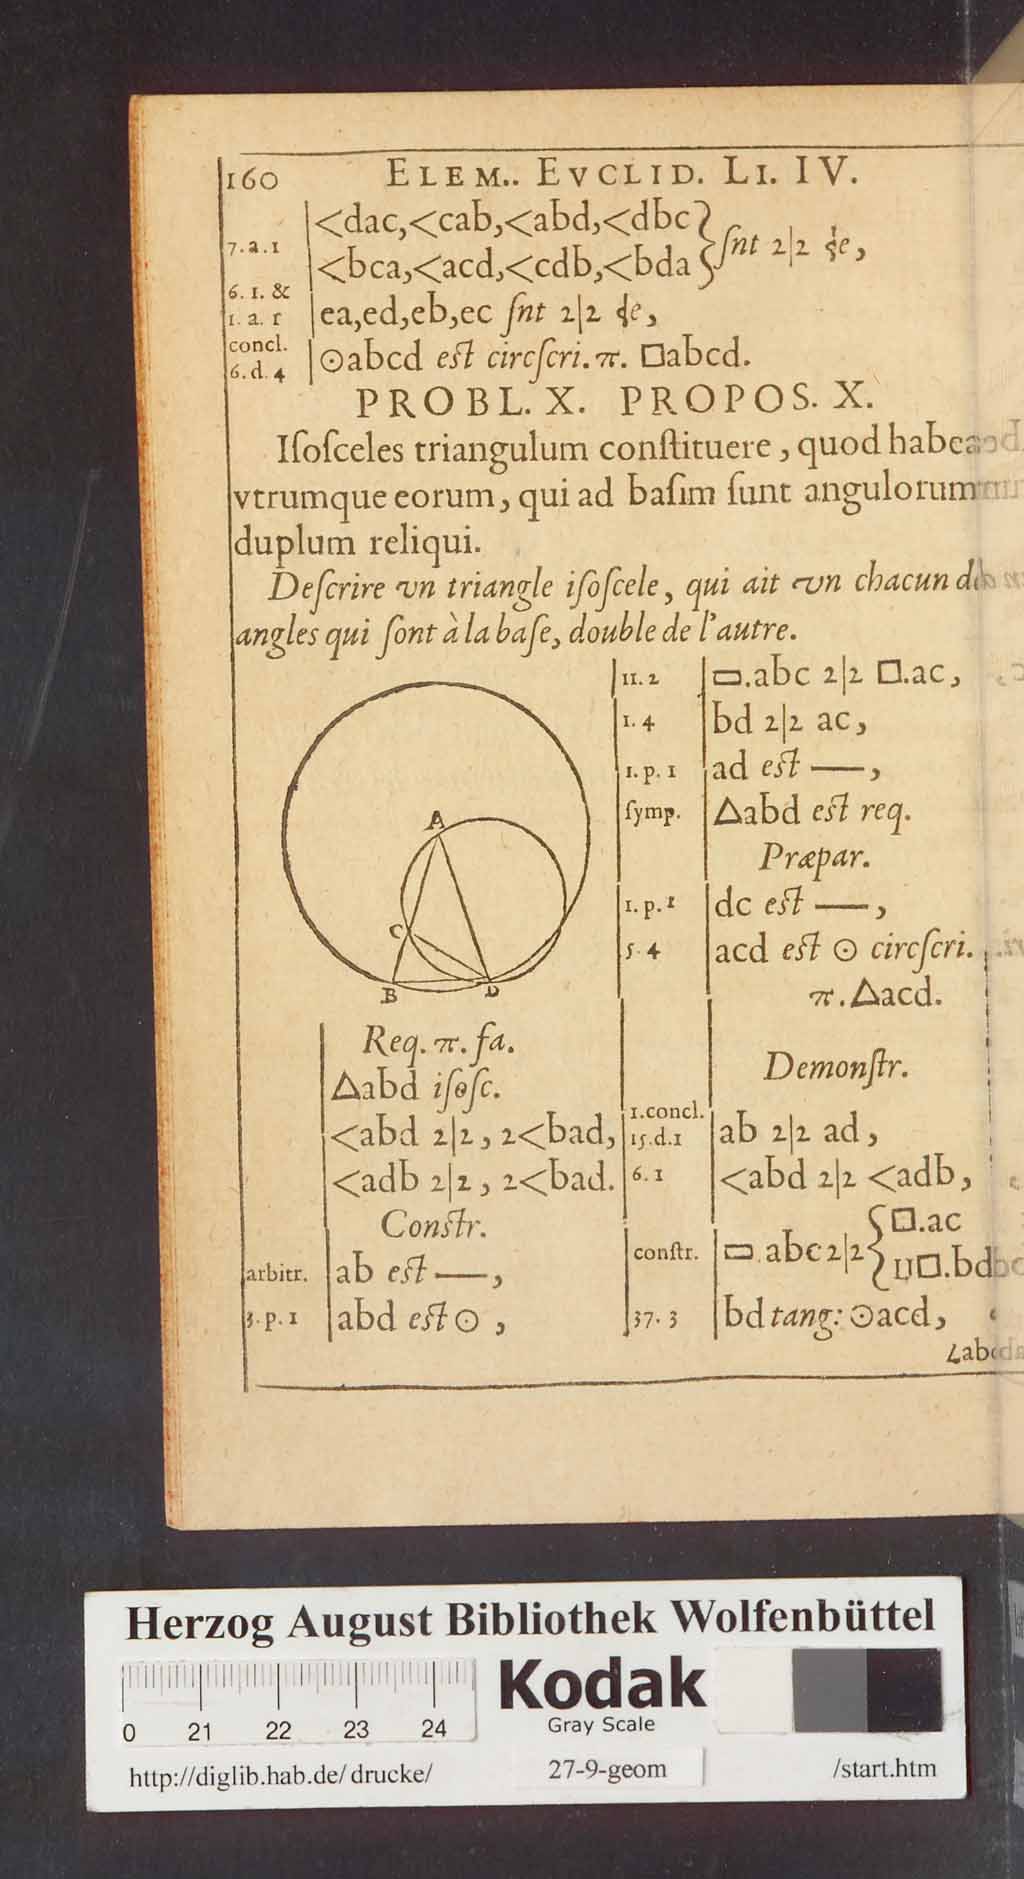 160 ELEM.. EVCLID. LI. IV.
7.a.1 <dac,<cab,<abd,<dbc
<bca,<acd,<cdb,<bda } ſnt 2|2 ɖe,
6. 1. &
1. a. 1 ea,ed,eb,ec ſnt 2|2 ɖe,
concl.
6.d.4 ⊙abcd est circſcri. π. □abcd.
PROBL. X. PROPOS. X.
Iſoſceles triangulum conſtituere, quod habea
vtrumque eorum, qui ad baſim ſunt angulorum
duplum reliqui.
Deſcrire vn triangle iſoſcele, qui ait vn chacun d
angles qui ſont à la baſe, double de l'autre.
A
C
B
D
Req. π. fa.
△abd iſoſc.
<abd 2|2, 2<bad,
<adb 2|2, 2<bad.
Constr.
arbitr. ab est —,
3.p.1 abd est ⊙,
11.2 ▭.abc 2|2 □.ac,
1.4 bd 2|2 ac,
1.p.1 ad est —,
ſymp. △abd est req.
Præpar.
1.p.1 dc est —,
5.4 acd est ⊙ circſcri.
π.△acd.
Demonſtr.
1.concl.
15.d.1 ab 2|2 ad,
6.1 <abd 2|2 <adb,
conſtr. ▭.abc 2|2 { □.ac
□.bd
37.3 bd tang: ⊙acd,
Herzog August Bibliothek Wolfenbüttel
0 21 22 23 24
Kodak
Gray Scale
http://diglib.hab.de/drucke/ 27-9-geom /start.htm